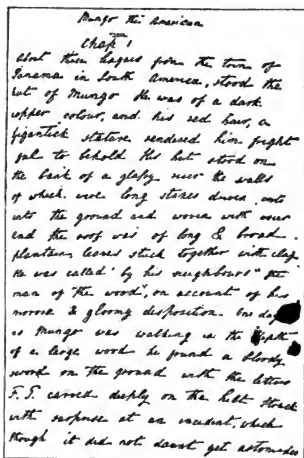 Mungo the American
Chap 1
About three leagues from the town of
Panama in South America, stood the
hut of Mungo He was of a dark
copper colour, and his red hair, a
gigantick stature rendered him fright
ful to behold His hut stood on
the bank of a glassy river the walls
of which were long stakes driven
into the ground and woven with
and the roof was of long & broad
plantain leaves stuck together with clay
He was called by his neighbours "the
man of the wood", on account of his
morose & gloomy disposition. One day
as Mungo was walking in the depth
of a large wood he found a bloody
sword on the ground with the letters
F. T. carved deeply on the hilt Struck
with surprise at an incident, which
though it did not daunt yet astonished